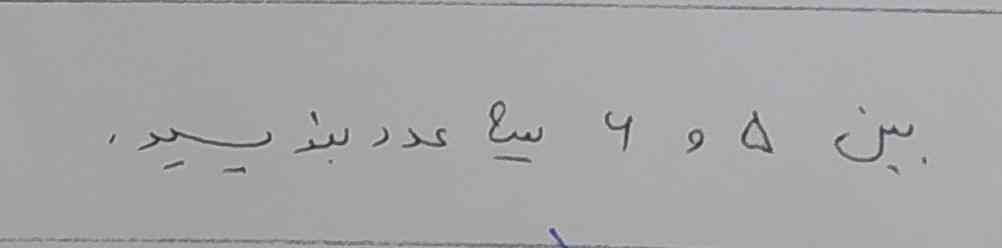 بین ۵ و ۶ سه عدد بنویسید.